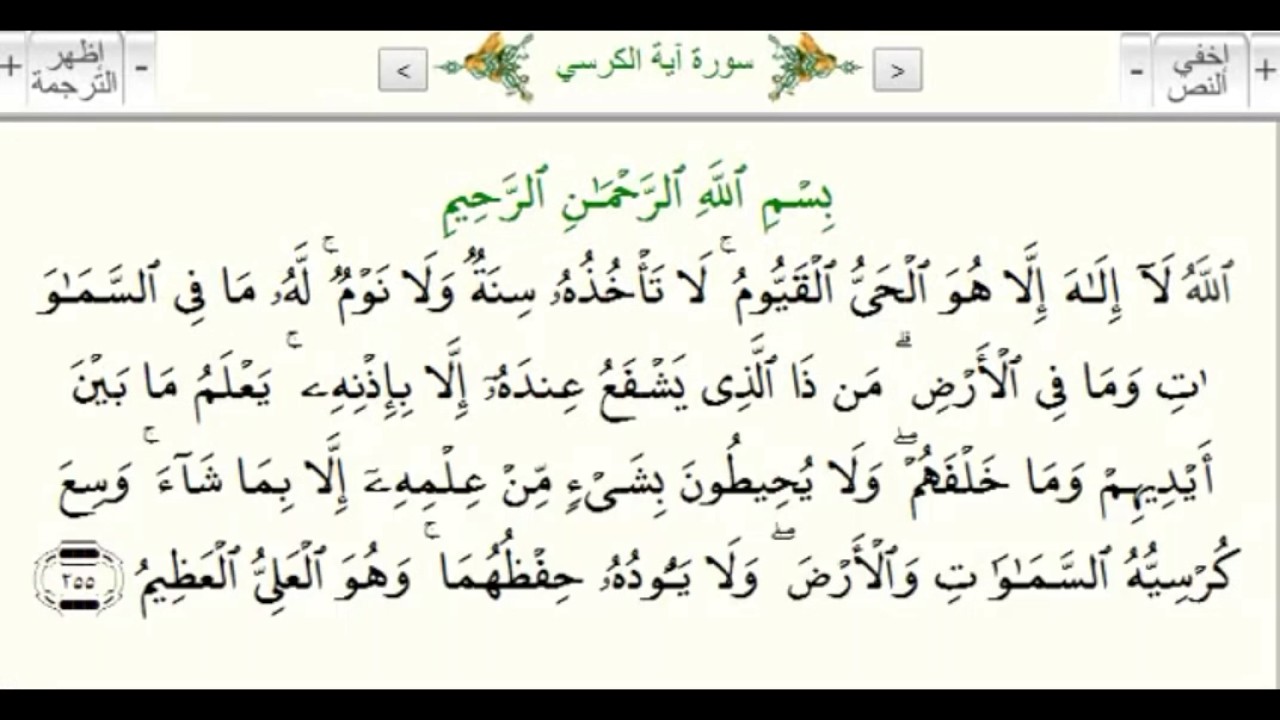 إظهر
الترجمة
+ -
< سورة آية الكرسي >
إخفي
النص
- +
بِسْمِ ٱللَّهِ ٱلرَّحْمَـٰنِ ٱلرَّحِيمِ
ٱللَّهُ لَآ إِلَـٰهَ إِلَّا هُوَ ٱلْحَىُّ ٱلْقَيُّومُ ۚ لَا تَأْخُذُهُۥ سِنَةٌۭ وَلَا نَوْمٌۭ ۚ لَّهُۥ مَا فِى ٱلسَّمَـٰوَ
ٰتِ وَمَا فِى ٱلْأَرْضِ ۗ مَن ذَا ٱلَّذِى يَشْفَعُ عِندَهُۥٓ إِلَّا بِإِذْنِهِۦ ۚ يَعْلَمُ مَا بَيْنَ
أَيْدِيهِمْ وَمَا خَلْفَهُمْ ۖ وَلَا يُحِيطُونَ بِشَىْءٍۢ مِّنْ عِلْمِهِۦٓ إِلَّا بِمَا شَآءَ ۚ وَسِعَ
كُرْسِيُّهُ ٱلسَّمَـٰوَٰتِ وَٱلْأَرْضَ ۖ وَلَا يَـُٔودُهُۥ حِفْظُهُمَا ۚ وَهُوَ ٱلْعَلِىُّ ٱلْعَظِيمُ ٢٥٥